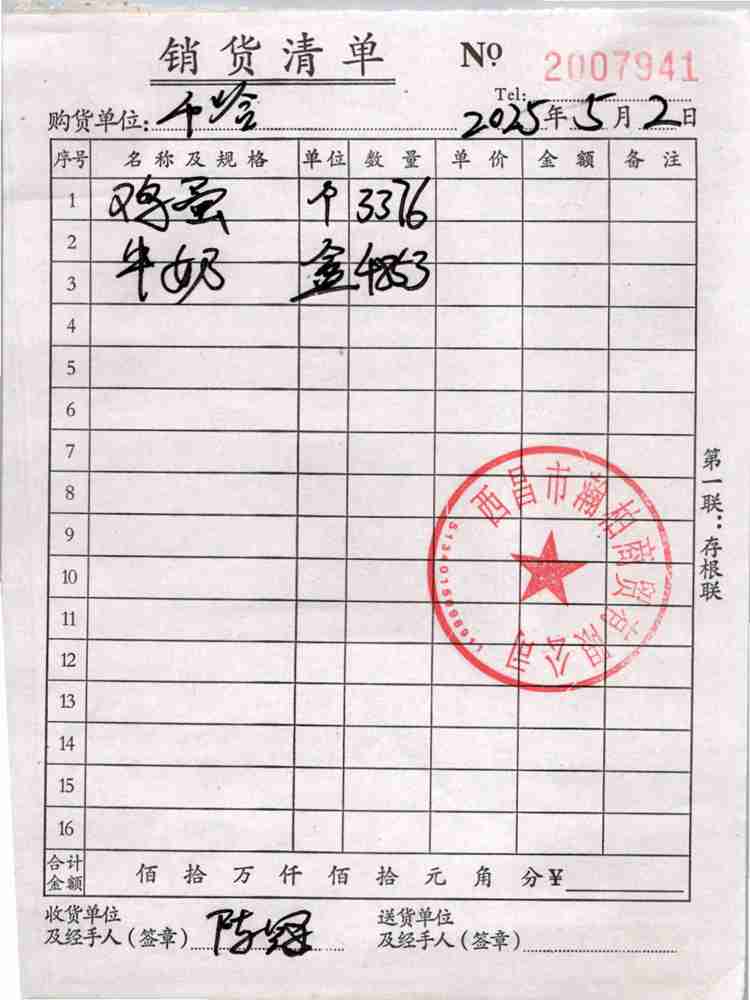 销货清单 № 2007941
Tel:
购货单位: 千哈 2025年5月2日
序号 名称及规格 单位 数量 单价 金额 备注
1 鸡蛋 个 3376
2 牛奶 盒 4853
3
4
5
6
7
8
9
10
11
12
13
14
15
16
合计金额 佰拾万仟佰拾元角分¥
收货单位 送货单位
及经手人(签章) 陈 及经手人(签章)
第一联:存根联
西昌市瀚柏商贸有限公司